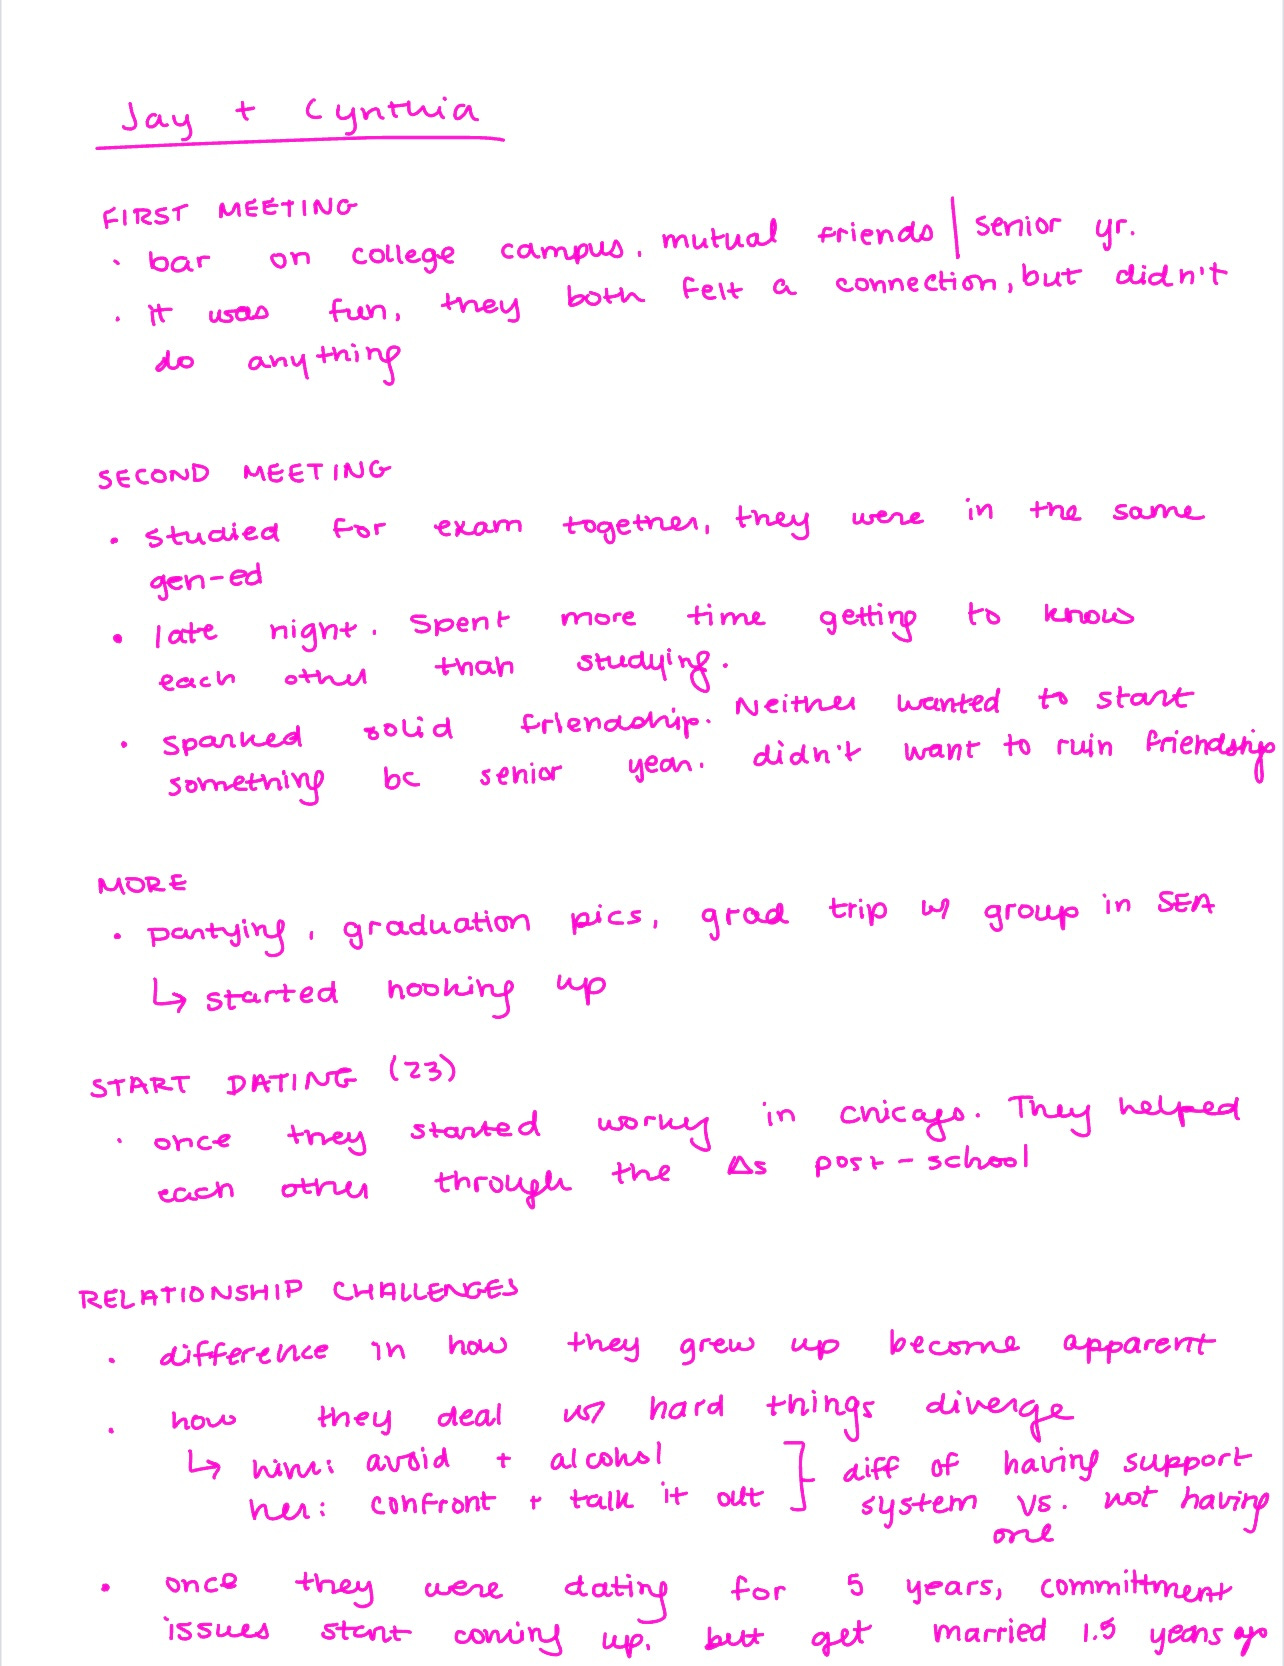 Jay + Cynthia
FIRST MEETING
· bar on college campus. mutual friends | senior yr.
· it was fun, they both felt a connection, but didn't
do anything
SECOND MEETING
• studied for exam together, they were in the same
gen-ed
• late night. Spent more time getting to know
each other than studying.
• sparked solid friendship. Neither wanted to start
something bc senior year. didn't want to ruin friendship
MORE
• partying, graduation pics, grad trip w/ group in SEA
↳ started hooking up
START DATING (23)
· once they started working in chicago. They helped
each other through the Δs post-school
RELATIONSHIP CHALLENGES
· difference in how they grew up become apparent
· how they deal w/ hard things diverge
↳ him: avoid + alcohol } diff of having support
her: confront + talk it out system vs. not having
one
• once they were dating for 5 years, committment
issues start coming up. but get married 1.5 years ago